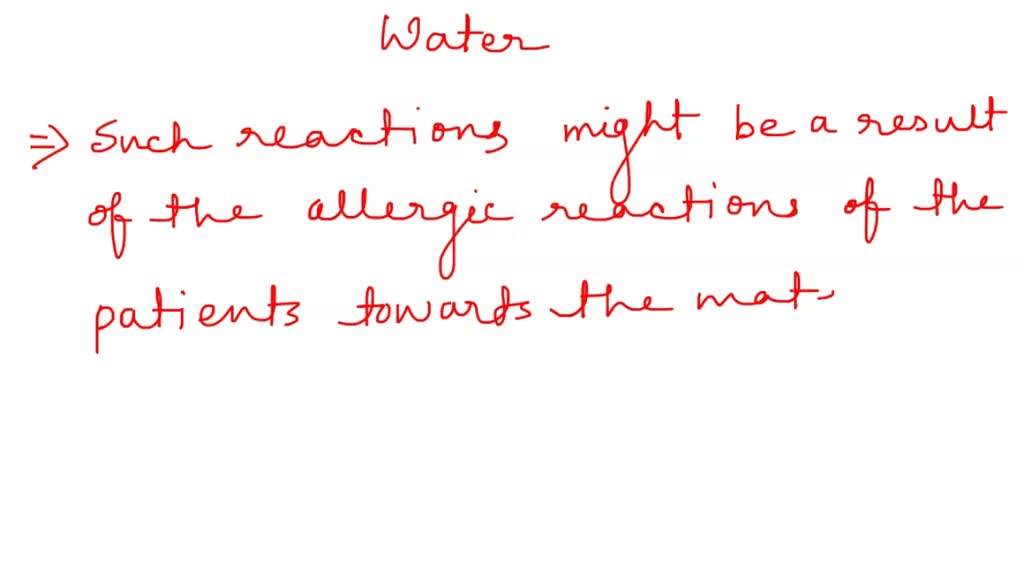 Water
⇒ Such reactions might be a result
of the allergic reactions of the
patients towards the mat